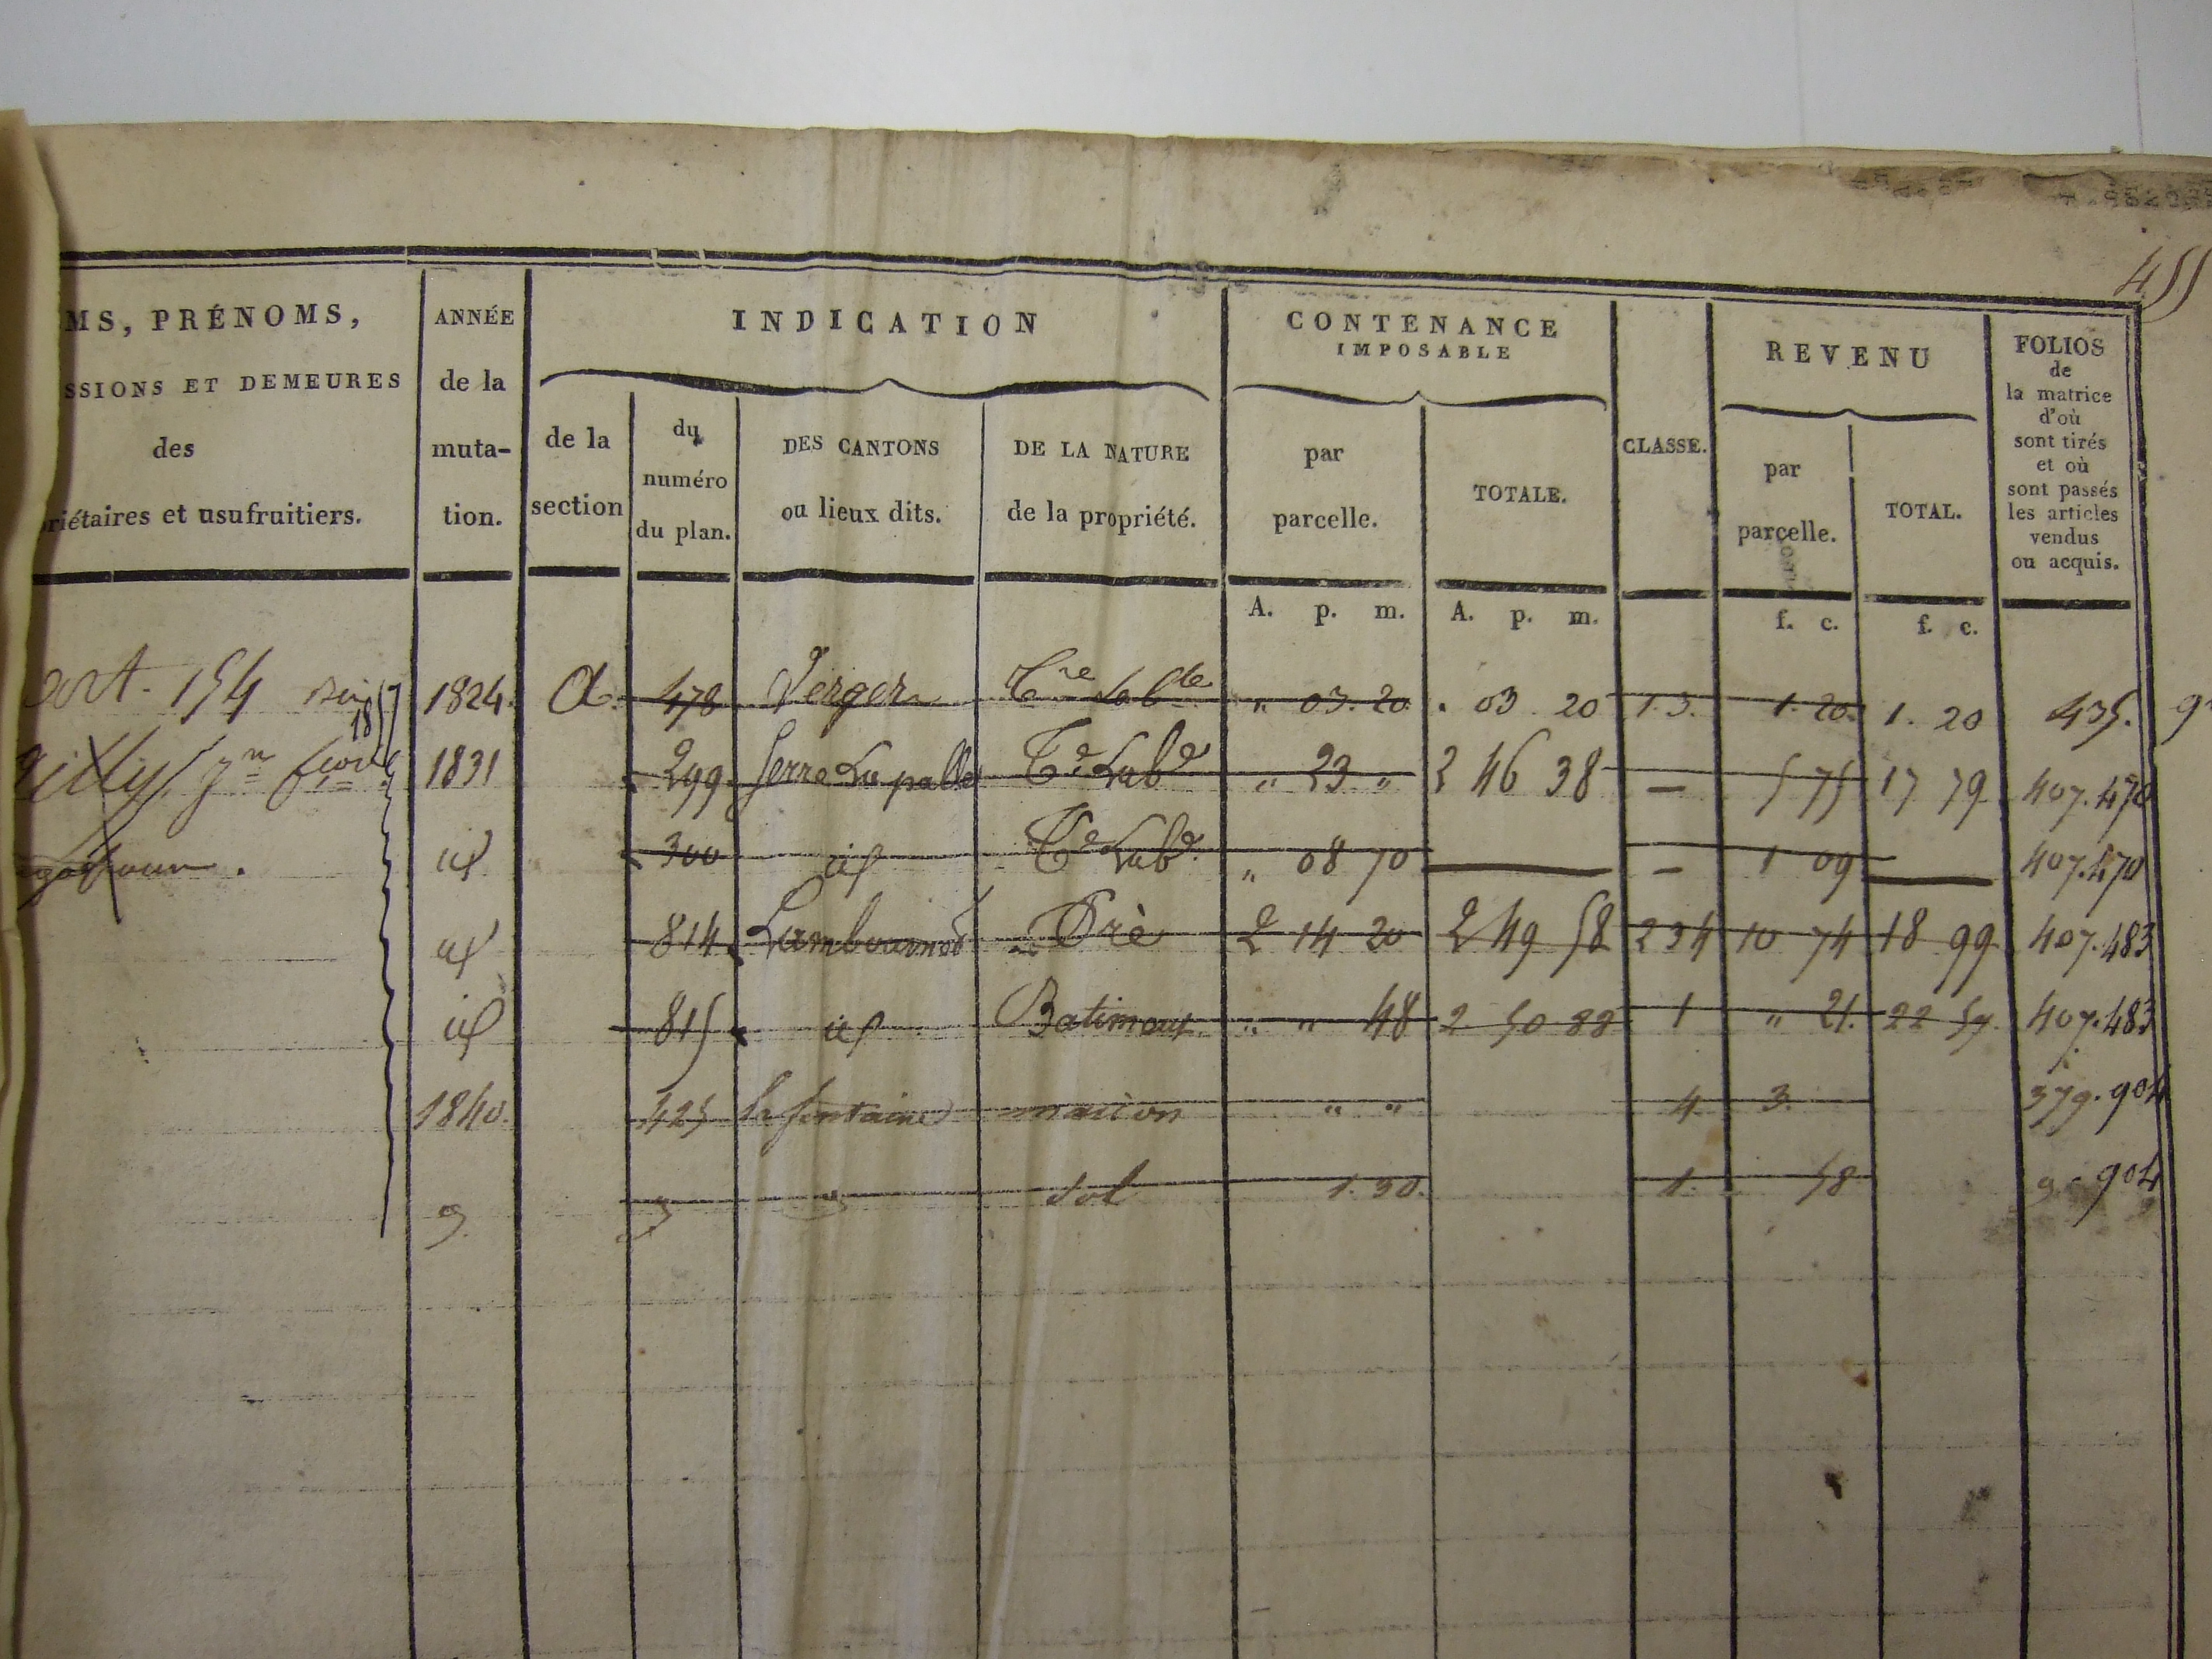 455
MS, PRÉNOMS,
SSIONS ET DEMEURES
des
riétaires et usufruitiers.
ANNÉE
de la
muta-
tion.
INDICATION
de la
section
du
numéro
du plan.
DES CANTONS
ou lieux dits.
DE LA NATURE
de la propriété.
CONTENANCE
IMPOSABLE
par
parcelle.
TOTALE.
CLASSE.
REVENU
par
parcelle.
TOTAL.
FOLIOS
de
la matrice
d'où
sont tirés
et où
sont passés
les articles
vendus
ou acquis.
A. p. m. A. p. m. f. c. f. c.
art. 154 1857
1824. A 478 Verger Tre Lable " 03. 20 . 03 20 1.3. 1. 20. 1. 20 435.
1831 299 Serre La palle Te Labe " 23 " 2 46 38 — 5 75 17 79 407.470
id 300 id Te Labe " 08 70 — — 1 09 — 407.470
id 814 Pré 2 14 20 2 49 58 234 10 74 18 99 407.483
id 815 id Batiment " " 48 2 50 88 1 " 21. 22 57 407.483
1840. 425 la fontaine maison " " 4 3. 379.904
" " " sol 1. 30. 1. 58 904